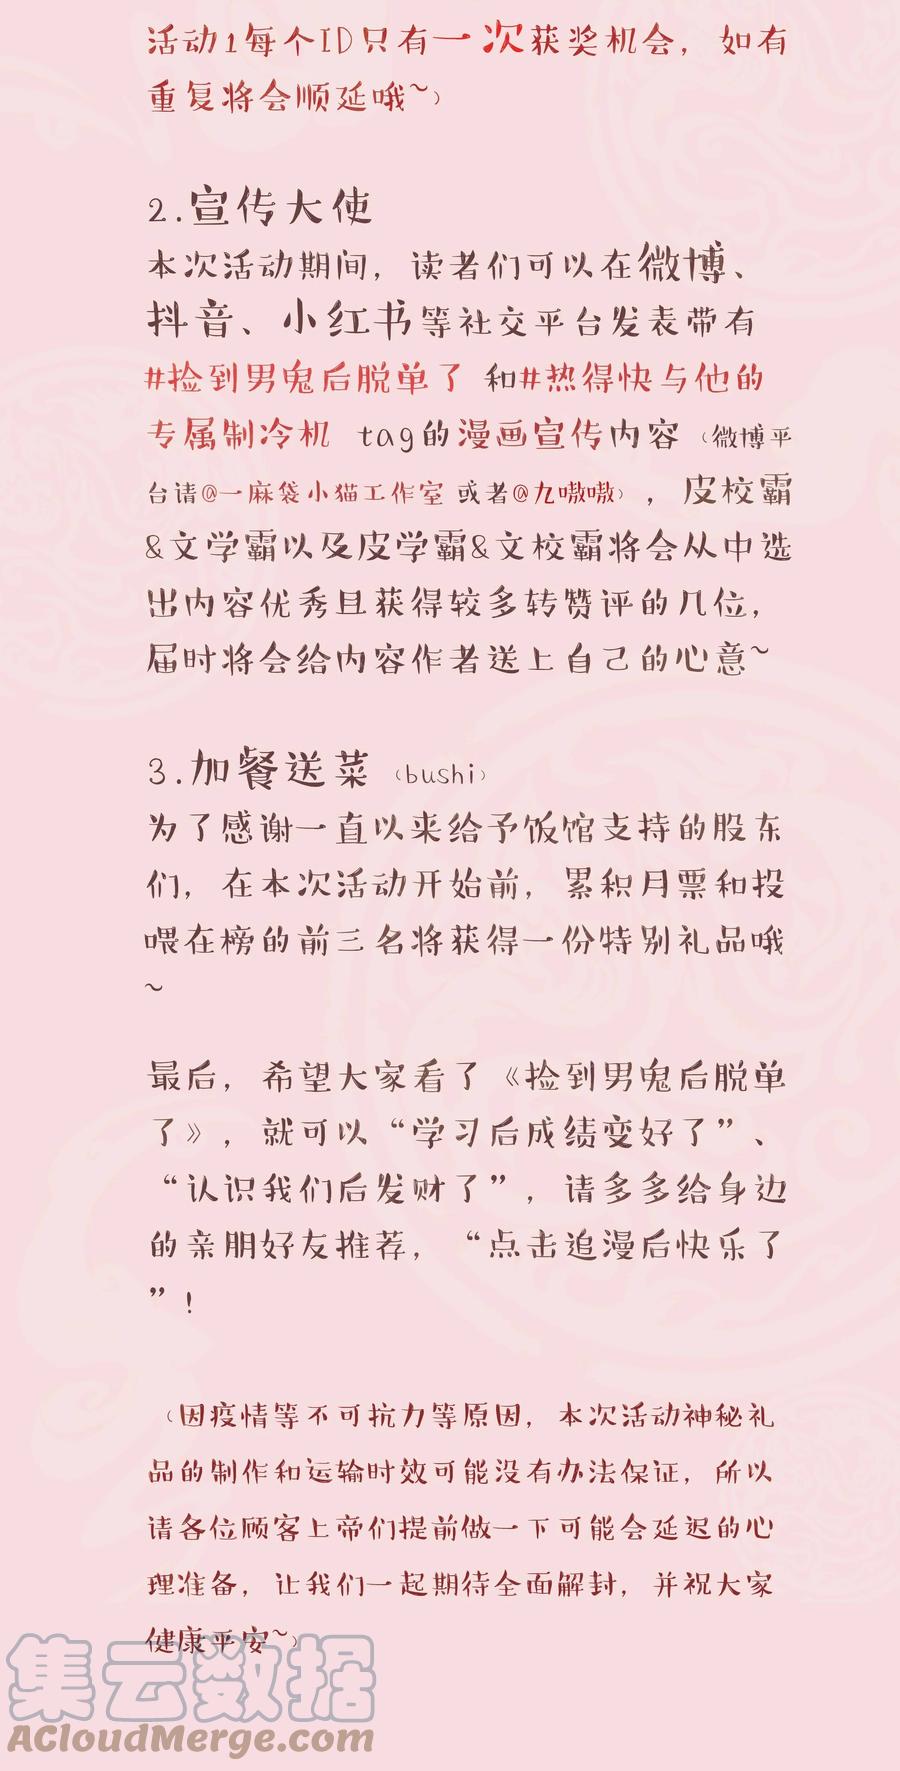 活动1每个ID只有一次获奖机会，如有
重复将会顺延哦~）
2.宣传大使
本次活动期间，读者们可以在微博、
抖音、小红书等社交平台发表带有
#捡到男鬼后脱单了 和#热得快与他的
专属制冷机 tag的漫画宣传内容（微博平
台请@一麻袋小猫工作室 或者@九嗷嗷），皮校霸
&文学霸以及皮学霸&文校霸将会从中选
出内容优秀且获得较多转赞评的几位，
届时将会给内容作者送上自己的心意~
3.加餐送菜（bushi）
为了感谢一直以来给予饭馆支持的股东
们，在本次活动开始前，累积月票和投
喂在榜的前三名将获得一份特别礼品哦
~
最后，希望大家看了《捡到男鬼后脱单
了》，就可以“学习后成绩变好了”、
“认识我们后发财了”，请多多给身边
的亲朋好友推荐，“点击追漫后快乐了
”！
（因疫情等不可抗力等原因，本次活动神秘礼
品的制作和运输时效可能没有办法保证，所以
请各位顾客上帝们提前做一下可能会延迟的心
理准备，让我们一起期待全面解封，并祝大家
健康平安~）
集云数据
ACloudMerge.com